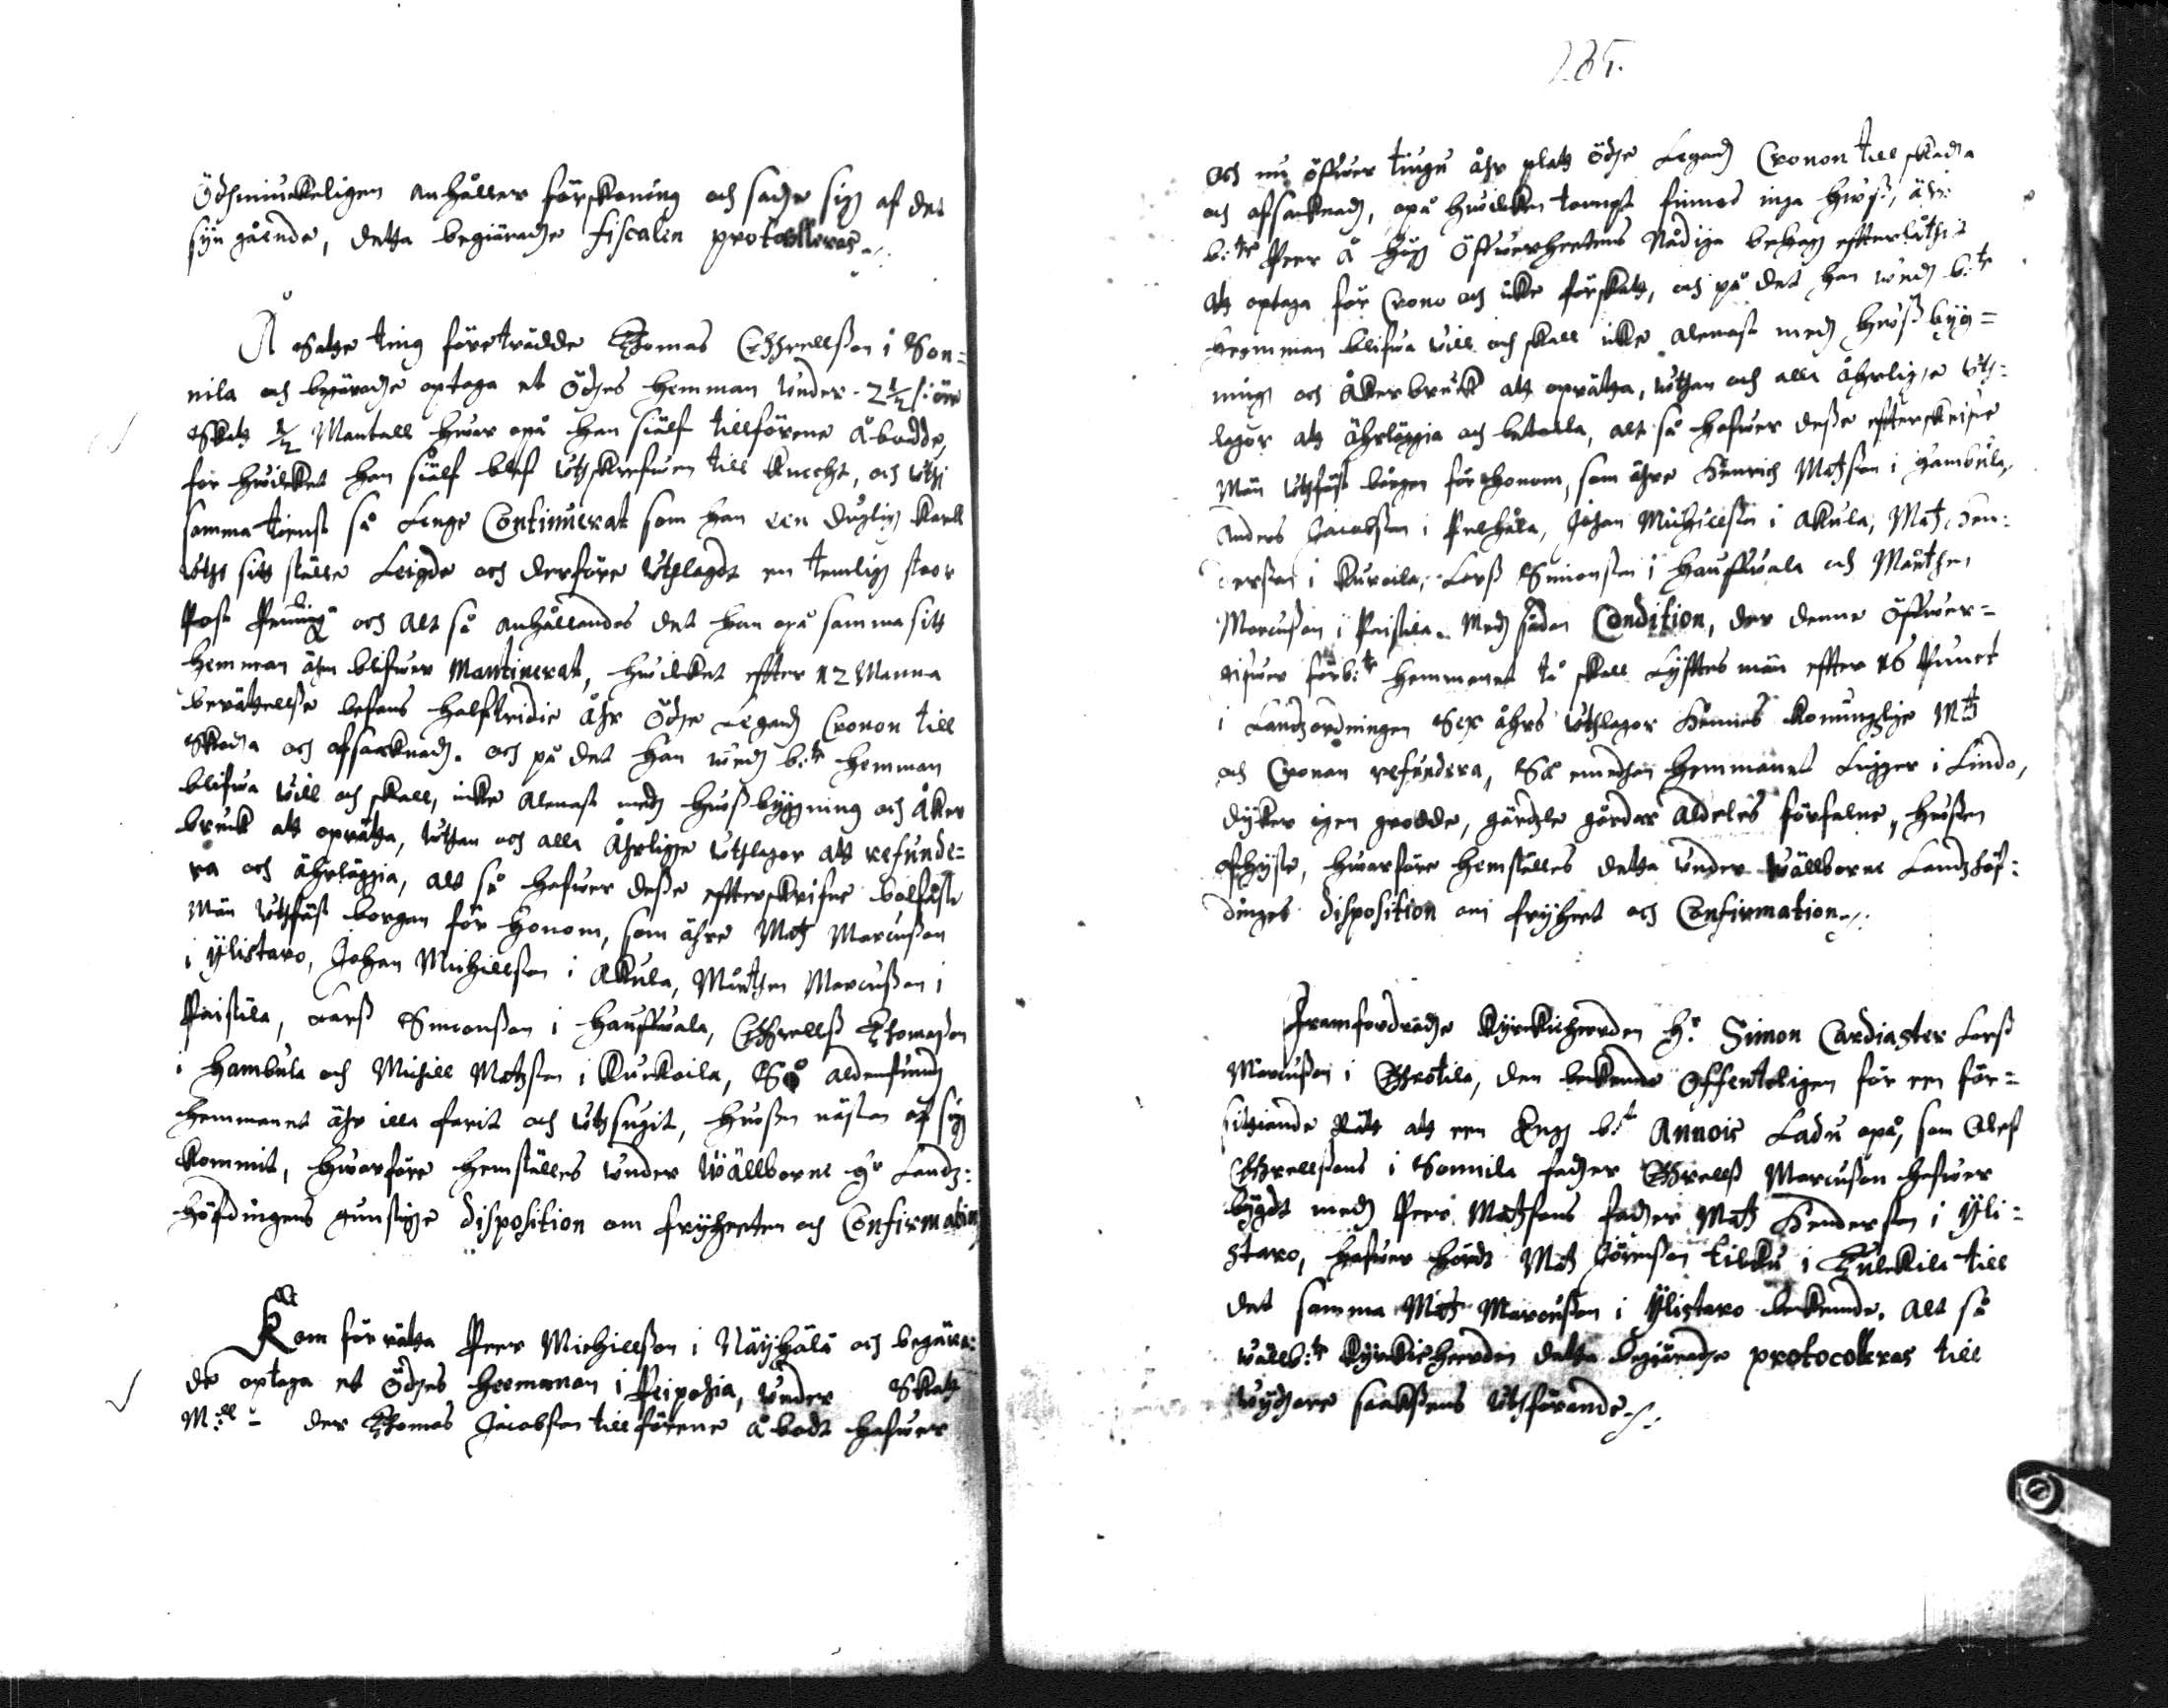 Ödhmiuckeligen anhåller förskoning och sade sig af det
syn gående, detta begiärade fiscalen protocolleras
Å Satte ting företrädde Thomas Chrellsson i Son=
nila och begiärade optaga et Ödhes hemman under 2 1/2 s: öre
Skatt 1/2 Mantall hwar opå han siälf tillförene åbodde,
för hwilcket han siälf blef uthskrefwen till kneckt, och uthi
samma tienst så Lenge Continuerat som han een duglig karll
uthi sitt ställe Leigde och derföre uthlagdt en temlig stoor
Post Penning och alt så anhållandes det han opå samma sitt
hemman åhm blifwer Mantinerat, hwilcket effter 12 Manna
berättellsse befans halftridie åhr Ödhe Legandh Cronon till
Skada och afsacknadh. och på det han widh b:te hemman
blifwa will och skall, icke alenast medh huusbyggning och åker
bruuk att oprätta, uthan och alla åhrlige uthlagor att refunde=
ra och åhrläggia, alt så hafwer desse effterskrifne bolfaste
Män uthfäst borgan för honom, som ähre Matz Marcusson
i Ylistaro, Johan Michillsson i Akula, Mårthen Marcusson i
Paistila, Larss Simonsson i Hauffwala, Chrellss Thomasson
i Hambula och Michill Mattsson i Kurkoila, Så aldenstundh
hemmanet ähr illa farit och uthsugit, huusen nästan af sig
kommit, hwarföre hemställes under Wällborne Hr Landz:
höfdingens gunstige disposition om frijheeten och Confirmation
Kom för rätta Peer Michillsson i Näyhälä och begära:
de optaga et Ödhes heemman i Peipohia, under Skatt
M:ll - der Thomas Jacobsson tillförene åbodt hafwer
285.
och nu öfwer tiugu åhr platt ödhe Legandh Cronon till skada
och afsacknadh, opå hwilcken tompt finnes inga huuss, ähr
b:te Peer å högh Öfwerheetens Nådige behagh effterlåthit
att optaga för Crono och icke förskatt, och på det han widh b:te
heemman blifwa will och skall icke alenast medh huussbyg=
ning och åkerbruuk att oprätta, uthan och alla åhrlige uth:
lagor att åhrläggia och betalla, alt så hafwer desse effterskrifne
Män uthfäst borgen för honom, som ähre Hinrich Mattsson i Hambula,
Anders Jacobsson i Pelhåla, Johan Michillsson i Akula, Matz Hen:
dersson i Kurcila, Larss Simonsson i Hauffwala och Mårthen
Marcusson i Paistila. Medh sådan Condition, der denne öfwer=
gifwer förb:te hemmanet då skall Lyfftes män effter 16 Punct
i Landzordningen Sex åhrs uthlagor Hennes Konungzlige Mtt
och Cronan refundera, Så emedhan hemmanet Ligger i Lindo,
dyker igen grodde, gärdzle gårdar aldeles förfalne, huussen
afhyste, hwarföre hemställes detta under Wällborne Landzhöf:
dinges disposition om frijheet och Confirmation
Framfordrade Kyrckieherden Hr Simon Cardiaster Larss
Marcusson i Chrotila, den bekende offenteligen för een för=
sittiande Rätt att een Engh b:d Annois Ladu opå, som Olef
Chrellssons i Sonnila fadher Chrellss Marcusson hafwer
bygdt medh Peer Mattsons fadher Matz Hendersson i Yli=
staro, hafwer hördt Matz Jörensson Lilku i Tulckila till
det samma Matz Marcusson i Ylistaro bekende. Alt så
wällb:te Kyrckieherden detta begiärade protocolleras till
wydhare saaksens uthförande